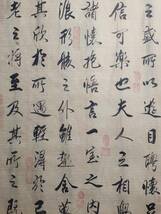 之盛所以遊目騁懷
信可樂也夫人之相與
諸懷抱悟言一室之
浪形骸之外雖趣舍萬
其欣於所遇暫得於己
老之將至及其所之既